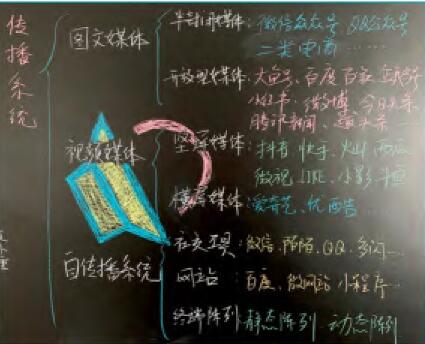 传播系统
图文媒体
半封闭媒体：微信公众号 QQ公众号
二类电商……
开放型媒体：大鱼号、百度百家
小红书、微博、今日头条
腾讯新闻、趣头条……
视频媒体
竖屏媒体：抖音 快手、火山 西瓜
微视
横屏媒体：爱奇艺、优酷
自传播系统
社交工具：微信、陌陌、QQ、多闪…
网站：百度、微网站 小程序…
终端阵列：静态阵列 动态阵列